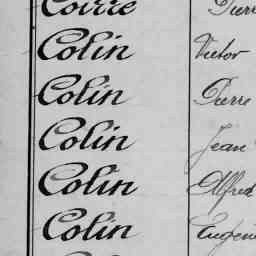 Coirre Pierre
Colin Victor
Colin Pierre
Colin Jean
Colin Alfred
Colin Eugène